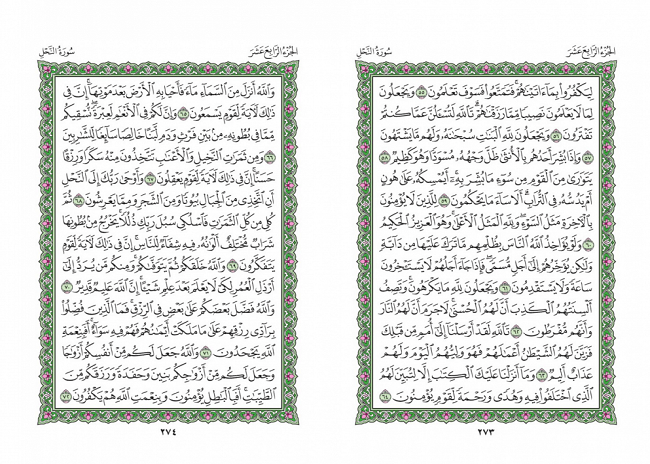 الجزء الرابع عشر
سورة النحل
لِيَكْفُرُوا۟ بِمَآ ءَاتَيْنَٰهُمْ ۚ فَتَمَتَّعُوا۟ ۖ فَسَوْفَ تَعْلَمُونَ ٥٥ وَيَجْعَلُونَ
لِمَا لَا يَعْلَمُونَ نَصِيبًا مِّمَّا رَزَقْنَٰهُمْ ۗ تَٱللَّهِ لَتُسْـَٔلُنَّ عَمَّا كُنتُمْ
تَفْتَرُونَ ٥٦ وَيَجْعَلُونَ لِلَّهِ ٱلْبَنَٰتِ سُبْحَٰنَهُۥ ۙ وَلَهُم مَّا يَشْتَهُونَ
٥٧ وَإِذَا بُشِّرَ أَحَدُهُم بِٱلْأُنثَىٰ ظَلَّ وَجْهُهُۥ مُسْوَدًّا وَهُوَ كَظِيمٌ ٥٨
يَتَوَٰرَىٰ مِنَ ٱلْقَوْمِ مِن سُوٓءِ مَا بُشِّرَ بِهِۦٓ ۚ أَيُمْسِكُهُۥ عَلَىٰ هُونٍ
أَمْ يَدُسُّهُۥ فِى ٱلتُّرَابِ ۗ أَلَا سَآءَ مَا يَحْكُمُونَ ٥٩ لِلَّذِينَ لَا يُؤْمِنُونَ
بِٱلْءَاخِرَةِ مَثَلُ ٱلسَّوْءِ ۖ وَلِلَّهِ ٱلْمَثَلُ ٱلْأَعْلَىٰ ۚ وَهُوَ ٱلْعَزِيزُ ٱلْحَكِيمُ
٦٠ وَلَوْ يُؤَاخِذُ ٱللَّهُ ٱلنَّاسَ بِظُلْمِهِم مَّا تَرَكَ عَلَيْهَا مِن دَآبَّةٍ
وَلَٰكِن يُؤَخِّرُهُمْ إِلَىٰٓ أَجَلٍ مُّسَمًّى ۖ فَإِذَا جَآءَ أَجَلُهُمْ لَا يَسْتَـْٔخِرُونَ
سَاعَةً ۖ وَلَا يَسْتَقْدِمُونَ ٦١ وَيَجْعَلُونَ لِلَّهِ مَا يَكْرَهُونَ وَتَصِفُ
أَلْسِنَتُهُمُ ٱلْكَذِبَ أَنَّ لَهُمُ ٱلْحُسْنَىٰ ۖ لَا جَرَمَ أَنَّ لَهُمُ ٱلنَّارَ
وَأَنَّهُم مُّفْرَطُونَ ٦٢ تَٱللَّهِ لَقَدْ أَرْسَلْنَآ إِلَىٰٓ أُمَمٍ مِّن قَبْلِكَ
فَزَيَّنَ لَهُمُ ٱلشَّيْطَٰنُ أَعْمَٰلَهُمْ فَهُوَ وَلِيُّهُمُ ٱلْيَوْمَ وَلَهُمْ
عَذَابٌ أَلِيمٌ ٦٣ وَمَآ أَنزَلْنَا عَلَيْكَ ٱلْكِتَٰبَ إِلَّا لِتُبَيِّنَ لَهُمُ
ٱلَّذِى ٱخْتَلَفُوا۟ فِيهِ ۙ وَهُدًى وَرَحْمَةً لِّقَوْمٍ يُؤْمِنُونَ ٦٤
٢٧٣
الجزء الرابع عشر
سورة النحل
وَٱللَّهُ أَنزَلَ مِنَ ٱلسَّمَآءِ مَآءً فَأَحْيَا بِهِ ٱلْأَرْضَ بَعْدَ مَوْتِهَآ ۚ إِنَّ فِى
ذَٰلِكَ لَءَايَةً لِّقَوْمٍ يَسْمَعُونَ ٦٥ وَإِنَّ لَكُمْ فِى ٱلْأَنْعَٰمِ لَعِبْرَةً ۖ نُّسْقِيكُم
مِّمَّا فِى بُطُونِهِۦ مِنۢ بَيْنِ فَرْثٍ وَدَمٍ لَّبَنًا خَالِصًا سَآئِغًا لِّلشَّٰرِبِينَ
٦٦ وَمِن ثَمَرَٰتِ ٱلنَّخِيلِ وَٱلْأَعْنَٰبِ تَتَّخِذُونَ مِنْهُ سَكَرًا وَرِزْقًا
حَسَنًا ۗ إِنَّ فِى ذَٰلِكَ لَءَايَةً لِّقَوْمٍ يَعْقِلُونَ ٦٧ وَأَوْحَىٰ رَبُّكَ إِلَى ٱلنَّحْلِ
أَنِ ٱتَّخِذِى مِنَ ٱلْجِبَالِ بُيُوتًا وَمِنَ ٱلشَّجَرِ وَمِمَّا يَعْرِشُونَ ٦٨ ثُمَّ
كُلِى مِن كُلِّ ٱلثَّمَرَٰتِ فَٱسْلُكِى سُبُلَ رَبِّكِ ذُلُلًا ۚ يَخْرُجُ مِنۢ بُطُونِهَا
شَرَابٌ مُّخْتَلِفٌ أَلْوَٰنُهُۥ فِيهِ شِفَآءٌ لِّلنَّاسِ ۗ إِنَّ فِى ذَٰلِكَ لَءَايَةً لِّقَوْمٍ
يَتَفَكَّرُونَ ٦٩ وَٱللَّهُ خَلَقَكُمْ ثُمَّ يَتَوَفَّىٰكُمْ ۚ وَمِنكُم مَّن يُرَدُّ إِلَىٰٓ
أَرْذَلِ ٱلْعُمُرِ لِكَىْ لَا يَعْلَمَ بَعْدَ عِلْمٍ شَيْـًٔا ۚ إِنَّ ٱللَّهَ عَلِيمٌ قَدِيرٌ ٧٠
وَٱللَّهُ فَضَّلَ بَعْضَكُمْ عَلَىٰ بَعْضٍ فِى ٱلرِّزْقِ ۚ فَمَا ٱلَّذِينَ فُضِّلُوا۟
بِرَآدِّى رِزْقِهِمْ عَلَىٰ مَا مَلَكَتْ أَيْمَٰنُهُمْ فَهُمْ فِيهِ سَوَآءٌ ۚ أَفَبِنِعْمَةِ
ٱللَّهِ يَجْحَدُونَ ٧١ وَٱللَّهُ جَعَلَ لَكُم مِّنْ أَنفُسِكُمْ أَزْوَٰجًا
وَجَعَلَ لَكُم مِّنْ أَزْوَٰجِكُم بَنِينَ وَحَفَدَةً وَرَزَقَكُم مِّنَ
ٱلطَّيِّبَٰتِ ۚ أَفَبِٱلْبَٰطِلِ يُؤْمِنُونَ وَبِنِعْمَتِ ٱللَّهِ هُمْ يَكْفُرُونَ ٧٢
٢٧٤